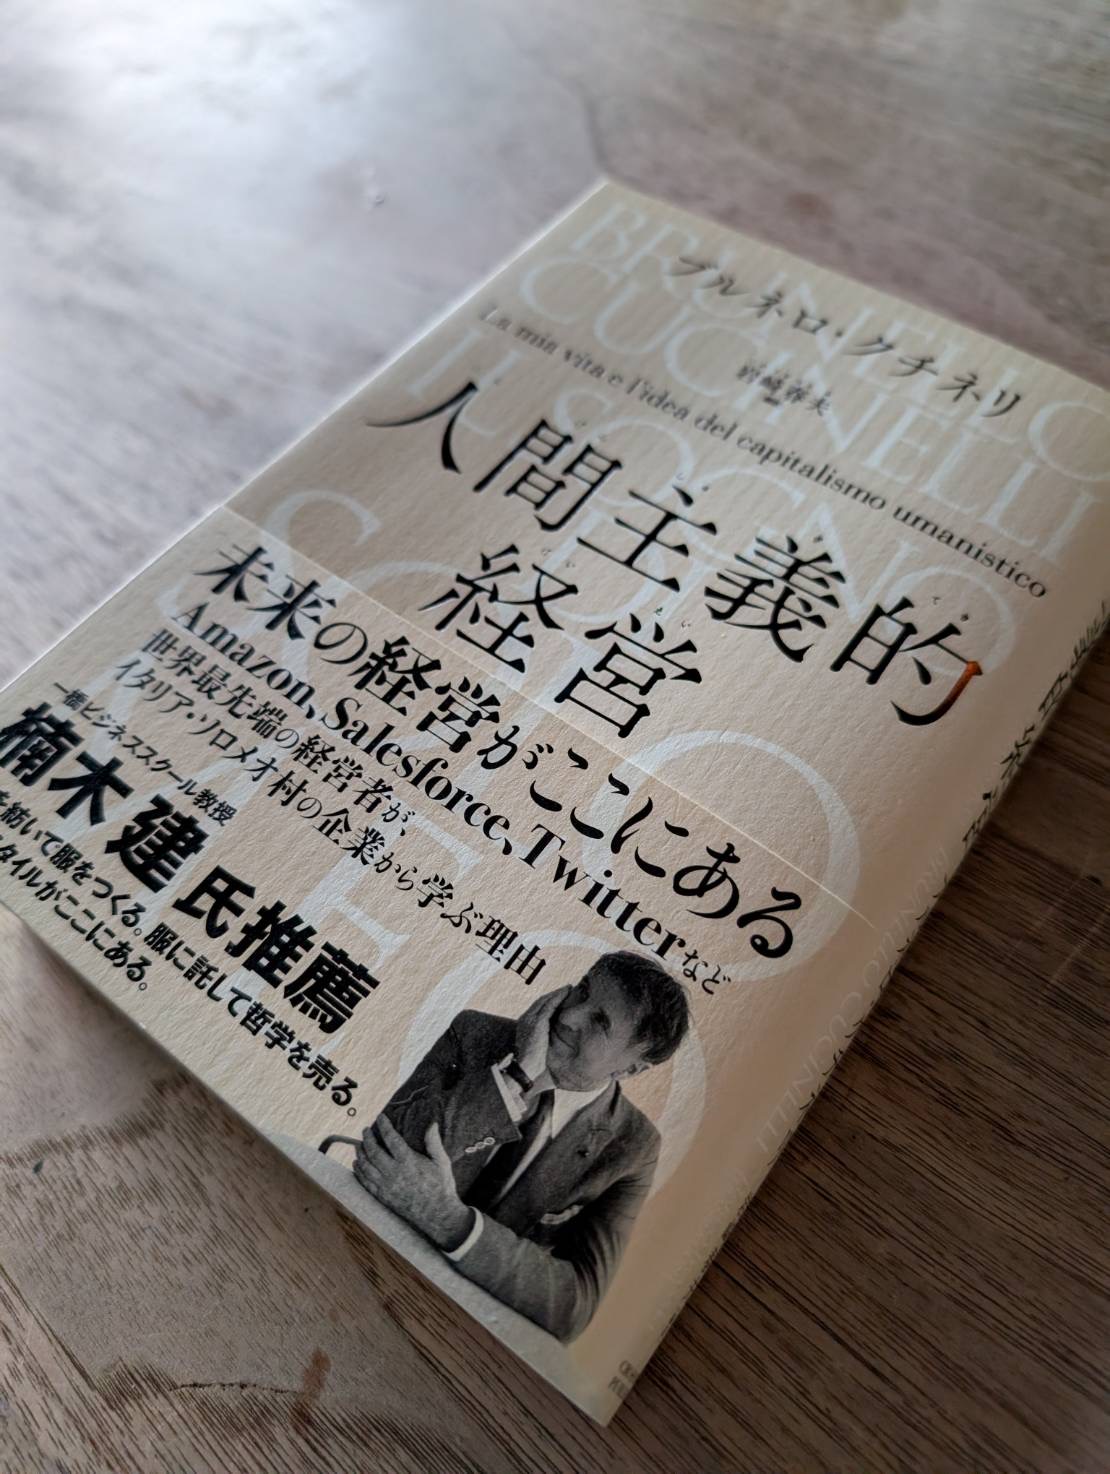 ブルネロ・クチネリ
岩崎春夫
La mia vita e l'idea del capitalismo umanistico
人間主義的
経営
BRUNELLO
CUCINELLI
IL SOGNO
DI
SOLOMEO
未来の経営がここにある
Amazon、Salesforce、Twitterなど
世界最先端の経営者が、
イタリア・ソロメオ村の企業から学ぶ理由
一橋ビジネススクール教授
楠木建氏推薦
を紡いで服をつくる。服に託して哲学を売る。
タイルがここにある。